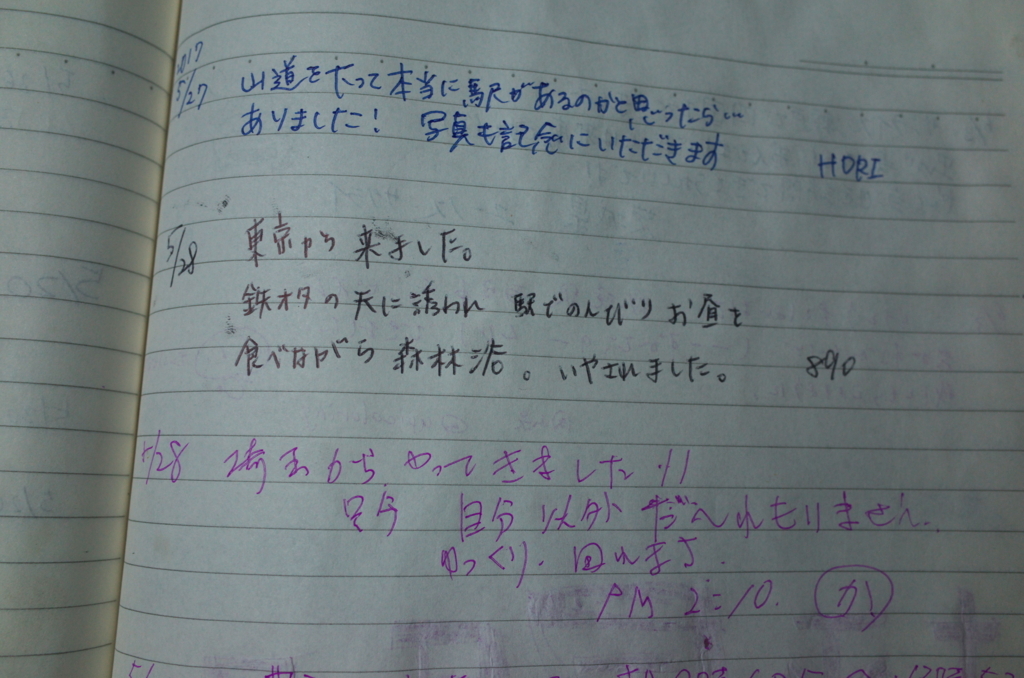 2017
5/27 山道をたって本当に駅があるのかと思ったら…
ありました! 写真も記念にいただきます
HORI
5/28 東京から来ました。
鉄オタの夫に誘われ 駅でのんびりお昼を
食べながら 森林浴。いやされました。 890
5/28 埼玉からやってきました!!
只今 自分以外だーれもいません。
ゆっくり、回れます.
PM 2:10. か